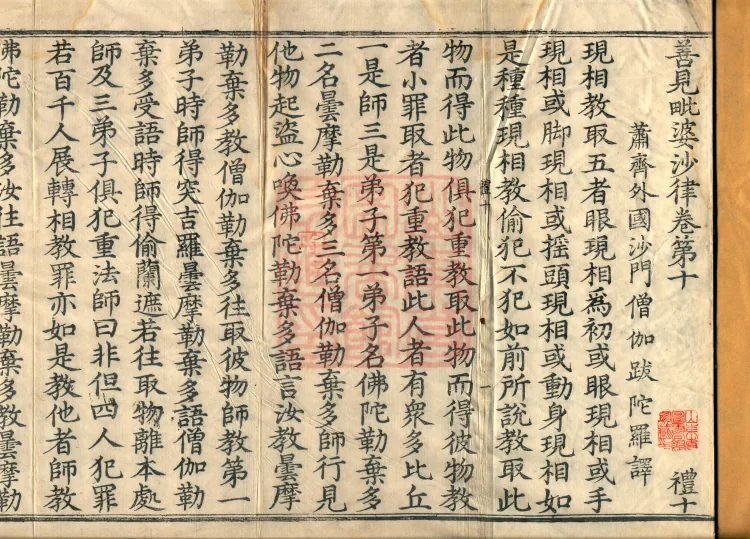 善見毗婆沙律卷第十 禮十
蕭齊外國沙門僧伽跋陀羅譯
現相教取五者眼現相為初或眼現相或手
現相或脚現相或搖頭現相或動身現相如
是種種現相教偷犯不犯如前所說教取此
禮十 一
物而得此物俱犯重教取此物而得彼物教
者小罪取者犯重教語此人者有衆多比丘
一是師三是弟子第一弟子名佛陀勒棄多
二名曇摩勒棄多三名僧伽勒棄多師行見
他物起盜心喚佛陀勒棄多語言汝教曇摩
勒棄多教僧伽勒棄多往取彼物師教第一
弟子時師得突吉羅曇摩勒棄多語僧伽勒
棄多受語時師得偷蘭遮若往取物離本處
師及三弟子俱犯重法師曰非但四人犯罪
若百千人展轉相教罪亦如是教他者師教
佛陀勒棄多汝往語曇摩勒棄多教曇摩勒